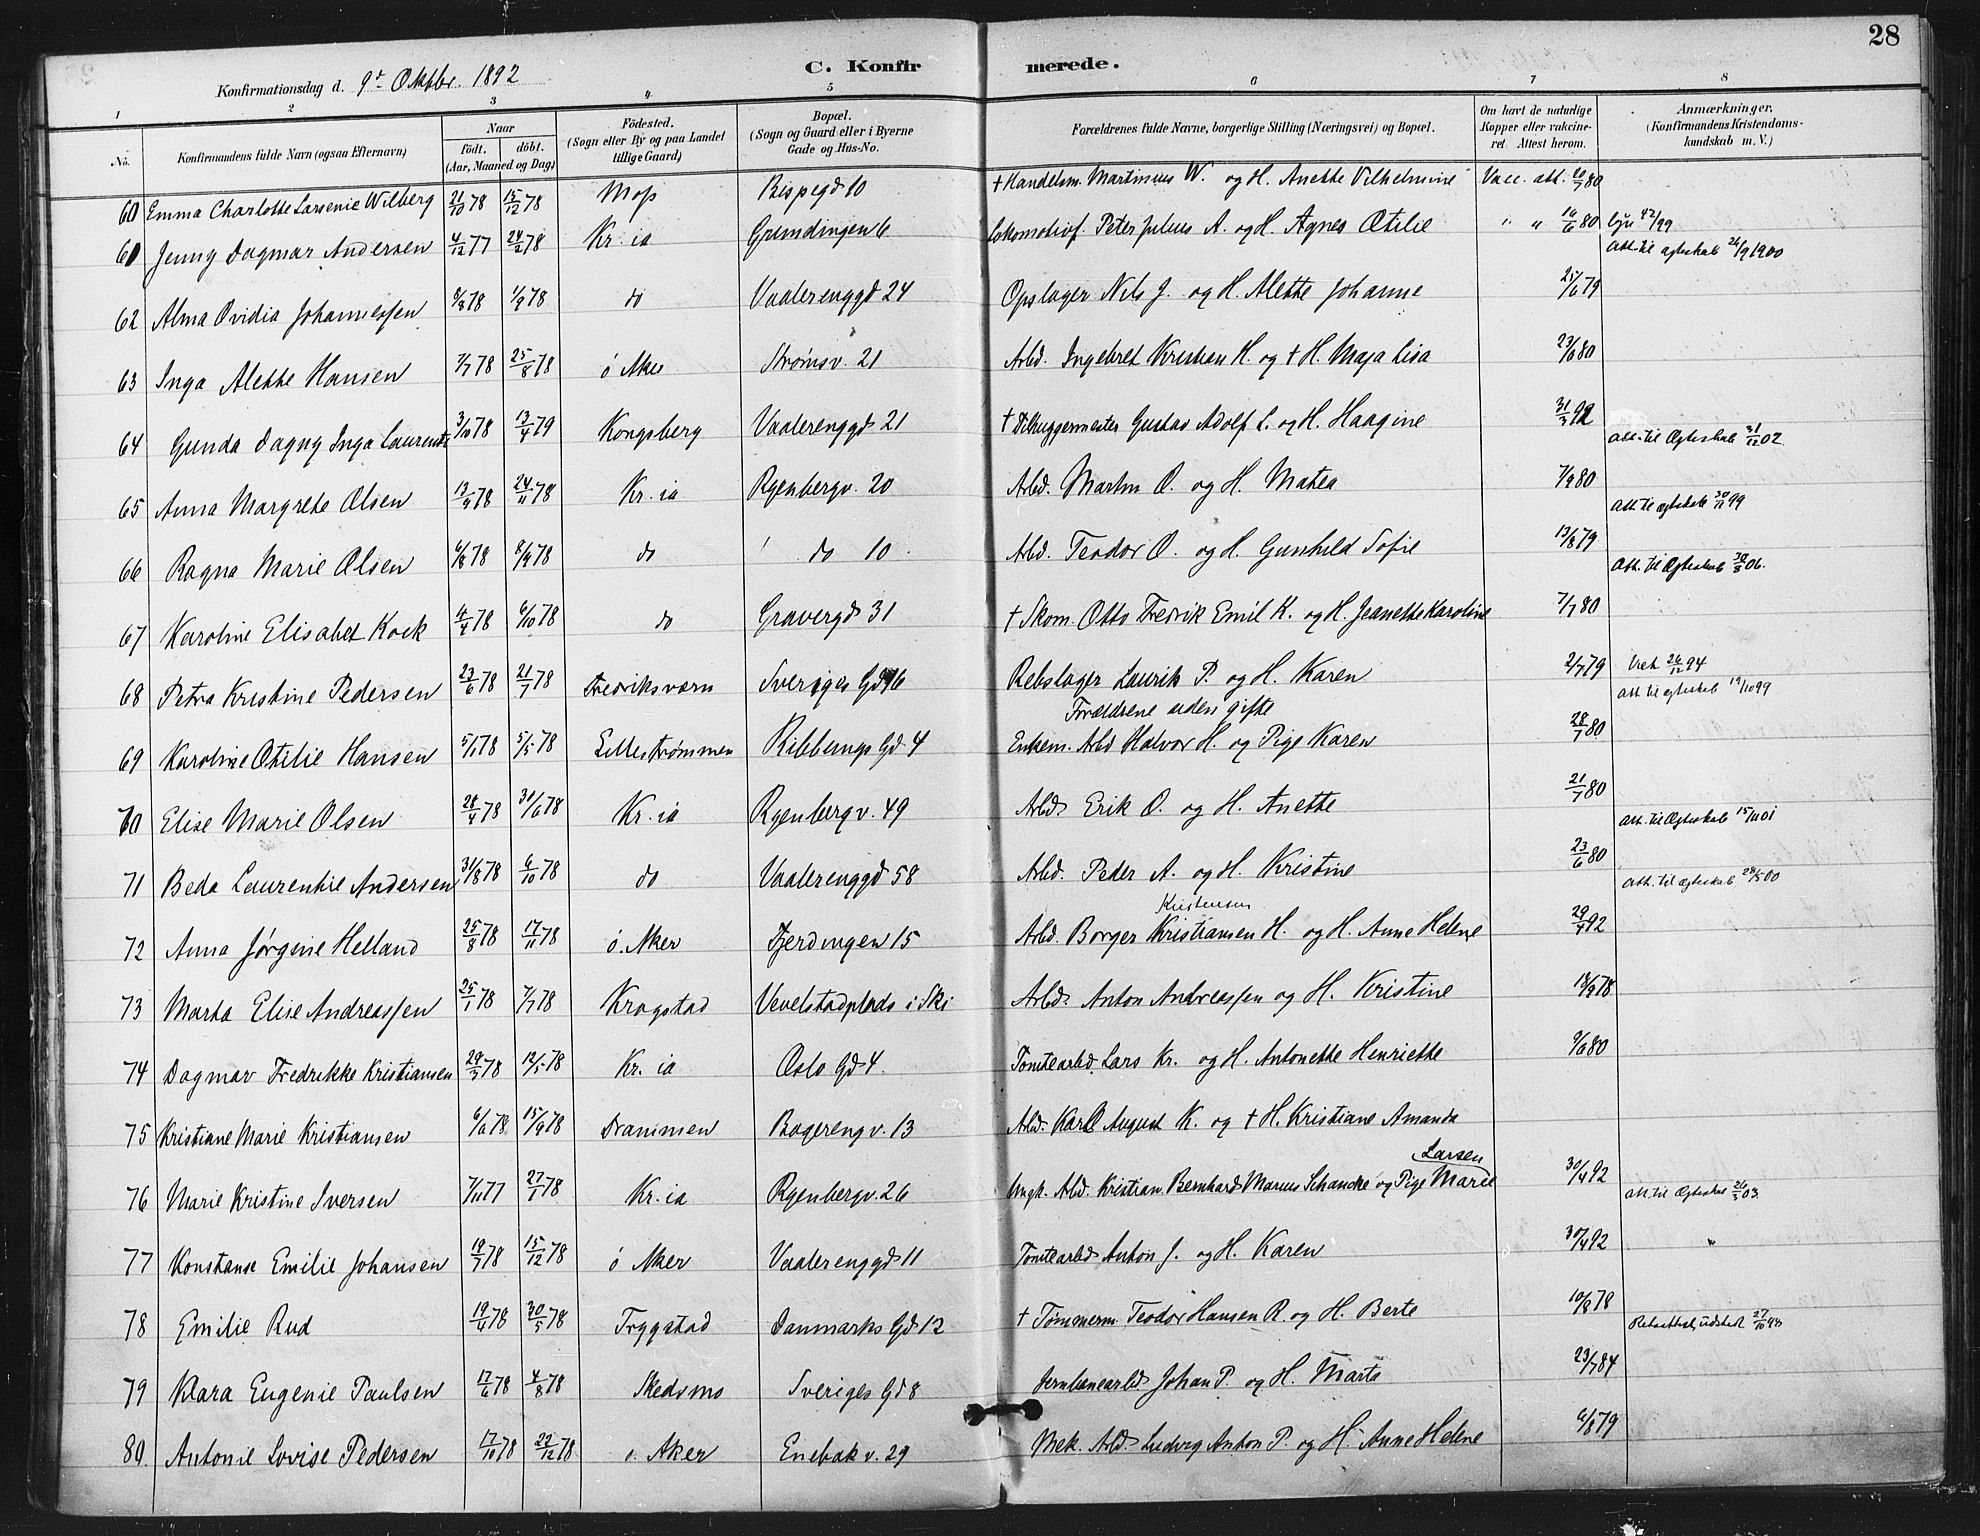 28
Konfirmationsdag d. 9de Oktbr. 1892 C. Konfirmerede.
1 2 3 4. 5 6 7 8
No. Konfirmandens fulde Navn (ogsaa Efternavn) Naar født. døbt. (Aar, Maaned og Dag) Fødested. (Sogn eller By og paa Landet tillige Gaard) Bopæl. (Sogn og Gaard eller i Byerne Gade og Hus-No. Forældrenes fulde Navne, borgerlige Stilling (Næringsvei) og Bopæl. Om havt de naturlige Kopper eller vakcineret. Attest herom. Anmærkninger. (Konfirmandens Kristendomskundskab m. V.)
60 Emma Charlotte Larsenie Wilberg 21/10 78 15/12 78 Moss Bispegd 10 † Handelsm. Martinius W. og H. Anette Vilhelmine Vacc. att. 80
61 Jenny Dagmar Andersen 4/12 77 24/2 78 Kr.ia Grændingen 6 Lokomotivf. Peter Julius A. og H. Agnes Otilie " " 16/6 80 42/99
Att. til ægteskab 26/9 1900
62 Alma Ovidia Johannessen 8/8 78 1/9 78 do Vaalerenggd 24 Opslager Nils J. og H. Alette Johanne 25/6 79
63 Inga Alette Hansen 7/7 78 25/8 78 ø Aker Strømsv. 21 Arbd. Ingebret Kristian H. og † H. Maja Lisa 23/6 80
64 Gunda Dagny Inga Laurentz 3/10 78 13/4 79 Kongsberg Vaalerenggd 21 † Gustav Adolf L. og H. Haagine 31/3 92 Att. til Ægteskab 31/12 02.
65 Anna Margrete Olsen 13/9 78 24/11 78 Kr.ia Ryenbergv. 20 Arbd. Martin O. og H. Matea 7/9 80 Att. til ægteskab 30/11 99
66 Ragna Marie Olsen 6/8 78 8/9 78 do do 10 Arbd. Teodor O. og H. Gunhild Sofie 13/8 79 Att. til Ægteskab 30/8 06.
67 Karoline Elisabet Kock 4/4 78 6/10 78 do Gravergd 31 † Skom. Otto Fredrik Emil K. og H. Jeanette Karoline 7/7 80
68 Petra Kristine Pedersen 23/6 78 21/7 78 Fredriksværn Sveriges Gd 16 Rebslager Laurik P. og H. Karen 2/7 79 26/12 94
att til ægteskab 19/10 99
Forældrene uden gifte
69 Karoline Otilie Hansen 5/1 78 5/5 78 Lillestrømmen Ribbungs Gd 4 Enkem. Arbd Halvor H. og Pige Karen 28/7 80
70 Elise Marie Olsen 28/4 78 30/6 78 Kr.ia Ryenbergv. 49 Arbd Erik O. og H. Anette 21/7 80 Att. til Ægteskab 15/11 01
71 Beda Laurentie Andersen 31/8 78 6/10 78 do Vaalerenggd 58 Arbd. Peder A. og H. Kristine 23/6 80 Att. til ægteskab 28/5 00
Kristensen
72 Anna Jørgine Helland 25/8 78 17/11 78 ø. Aker Fjerdingen 15 Arbd. Borger Kristiansen H. og H. Anne Helene 29/4 92
73 Marta Elise Andreassen 25/1 78 7/7 78 Kragstad Vevelstadplads i Ski Arbd. Anton Andreassen og H. Kristine 18/9 78
74 Dagmar Fredrikke Kristiansen 29/3 78 12/5 78 Kr.ia Oslo Gd 4. Tomtearbd. Lars Kr. og H. Antonette Henriette 9/6 80
75 Kristiane Marie Kristiansen 6/6 78 15/9 78 Drammen Bogerengv. 13 Arbd. Karl August K. og † H. Kristiane Amanda
Larsen
76 Marie Kristine Iversen 7/11 77 27/1 78 Kr.ia Ryenbergv. 26 Ungk. Arbd. Kristian Bernhard Marius Schancke og Pige Marie 30/4 92 Att. til Ægteskab 26/3 03.
77 Konstanse Emilie Johansen 19/7 78 15/12 78 ø Aker Vaalerenggd 11 Tomtearbd. Anton J. og H. Karen 30/4 92 "
78 Emilie Rud 19/4 78 30/5 78 Trygstad Danmarks Gd 12 † Tømmerm. Teodor Hansen R. og H. Berte 10/8 78 udstedt 27/10 43
79 Klara Eugenie Paulsen 17/6 78 4/8 78 Skedsmo Sveriges Gd 8 Jernbanearbd Johan P. og H. Marte 23/7 84
80 Antonie Lovise Pedersen 17/10 78 22/12 78 ø. Aker Enebak v. 29 Mek. Arbd. Ludvig Anton P. og H. Anne Helene 6/8 79